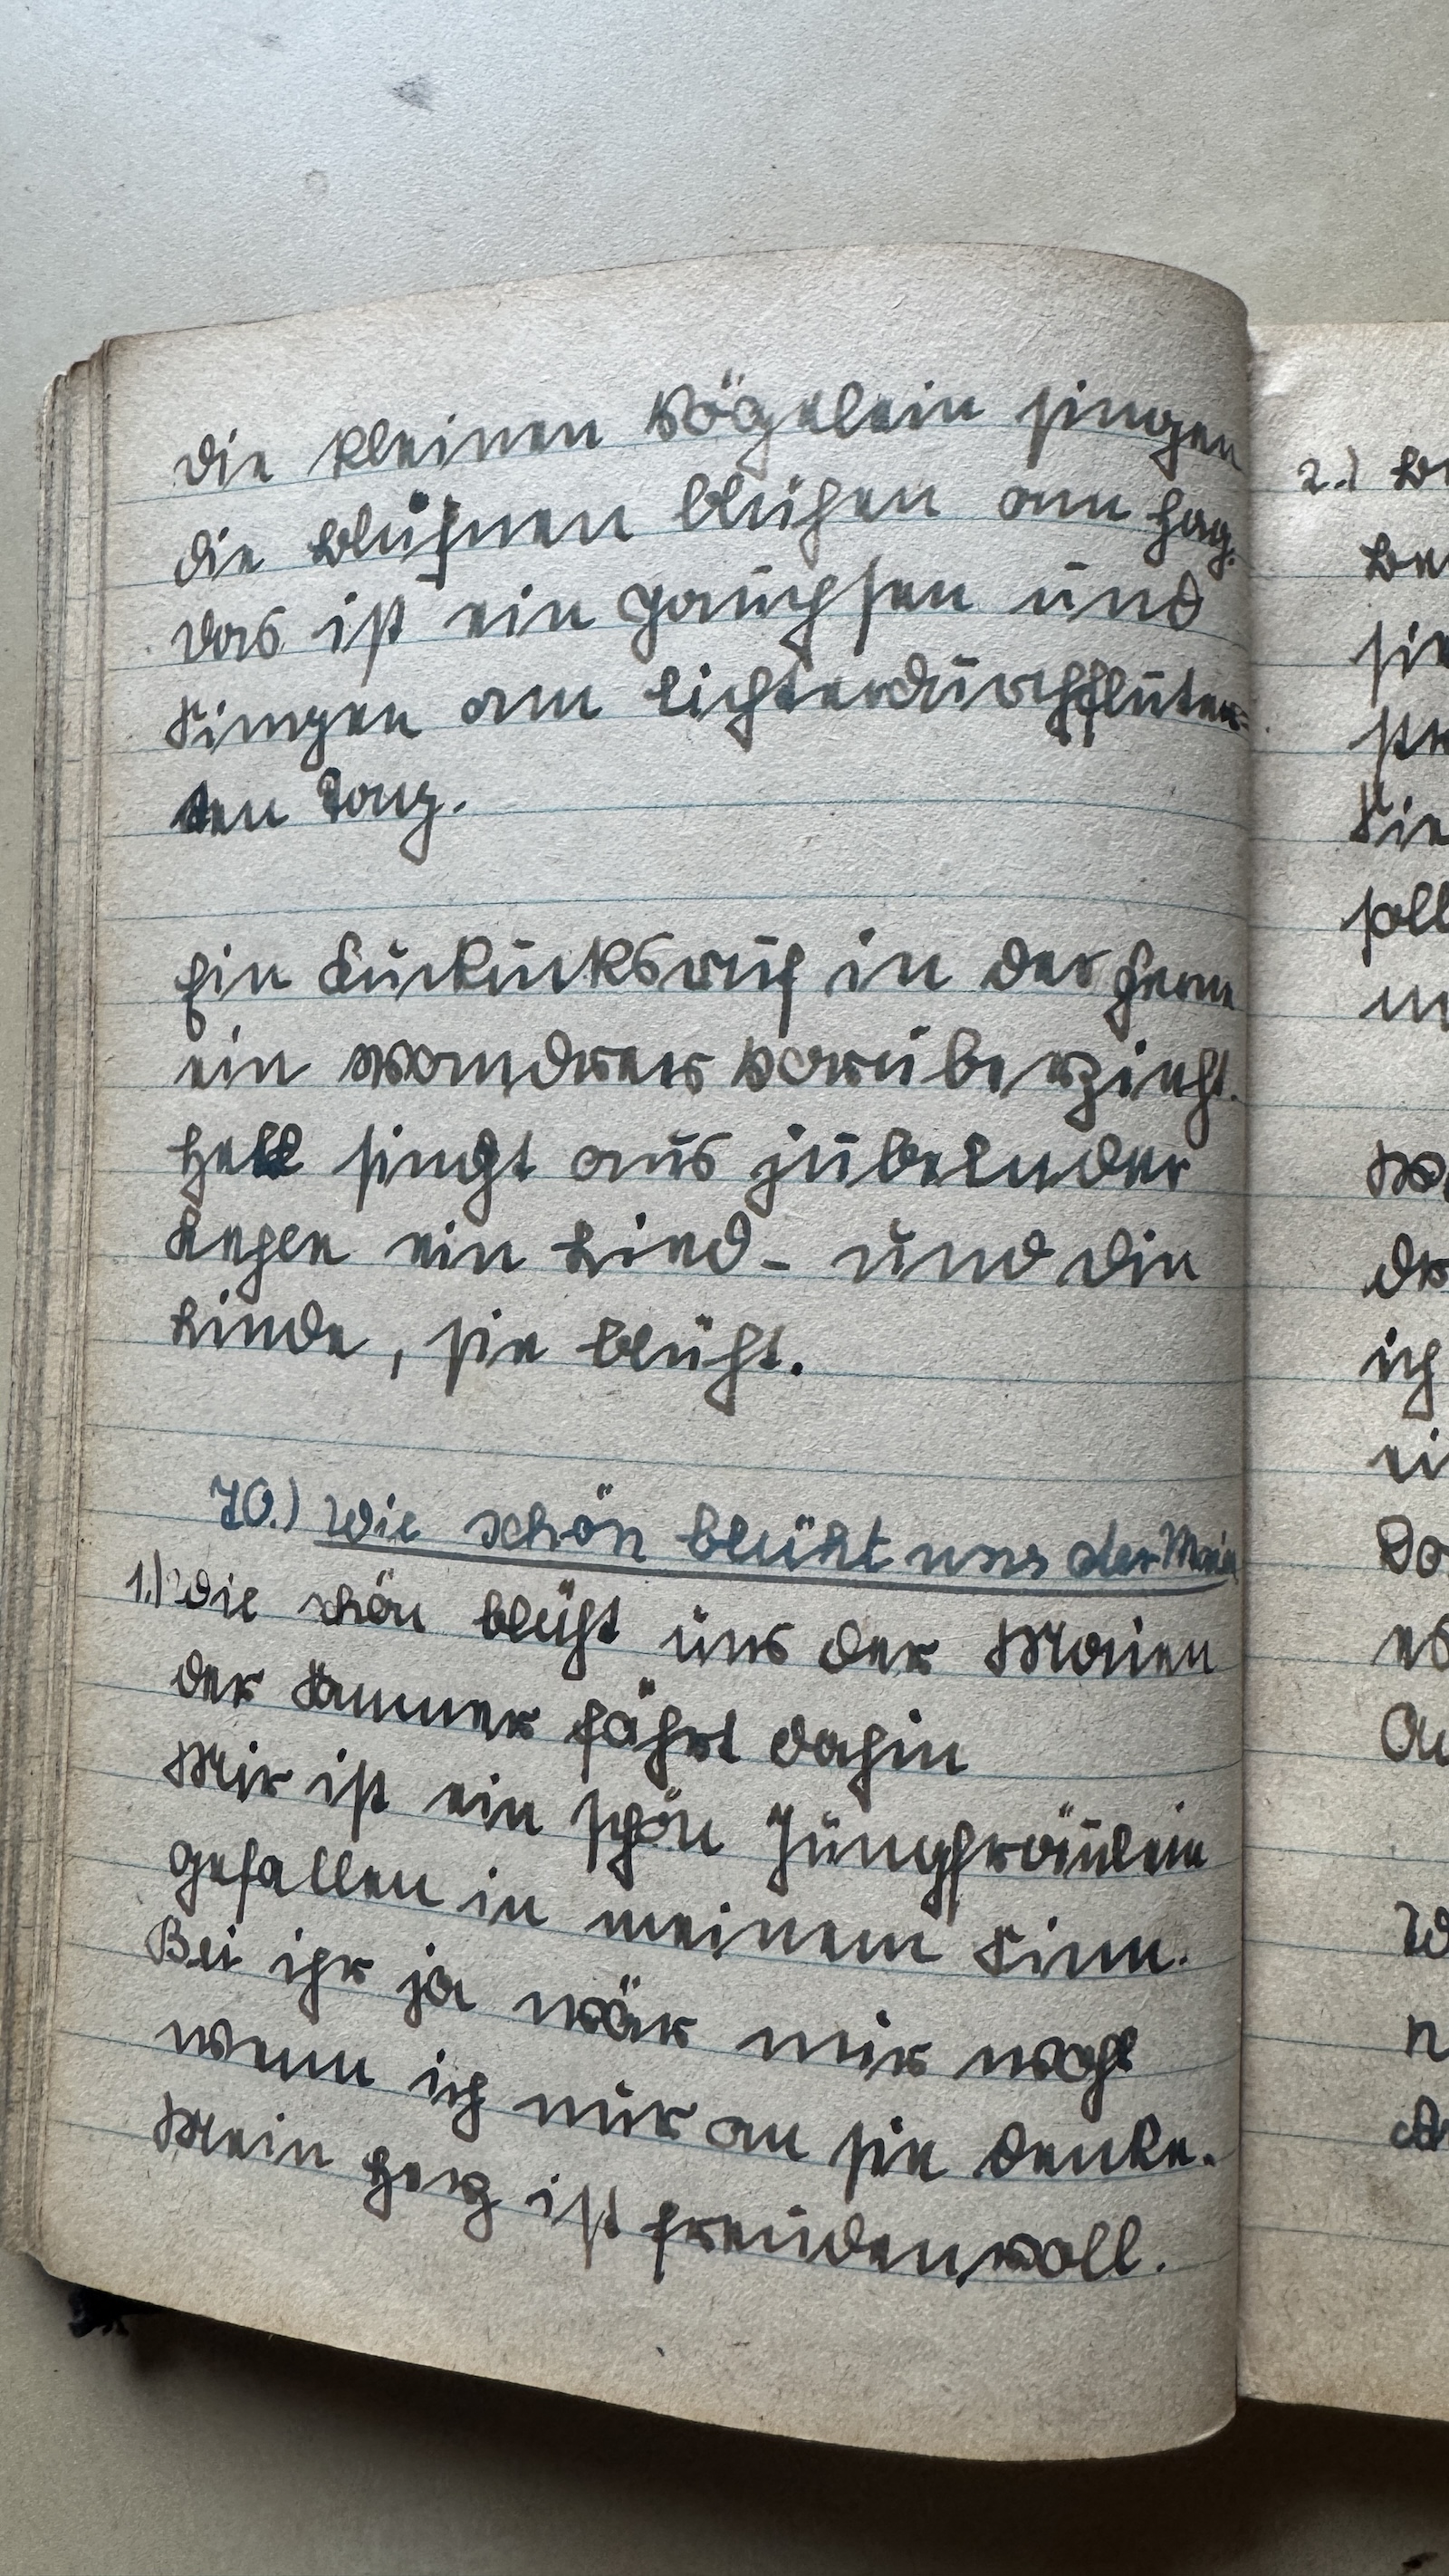 Die kleinen Vögelein singen
die Blühmen blühen am Hag.
Das ist ein Jauchsen und
Singen am lichterdurchfluten-
ten Tag.
Ein Kuckucksruf in der Ferne
ein Wandrer vorüberzieht.
Hell singt aus jubelnder
Kehle ein Lied - und die
Linde, sie blüht.
70.) Wie schön blüht uns der Maien
1.) Wie schön blüht uns der Maien
der Sommer fährt dahin
Mir ist ein schön Jungfräulein
gefallen in meinem Sinn.
Bei ihr ja wär mir wohl
wenn ich nur an sie denke.
Mein Herz ist freudenvoll.
2.)
ich
es